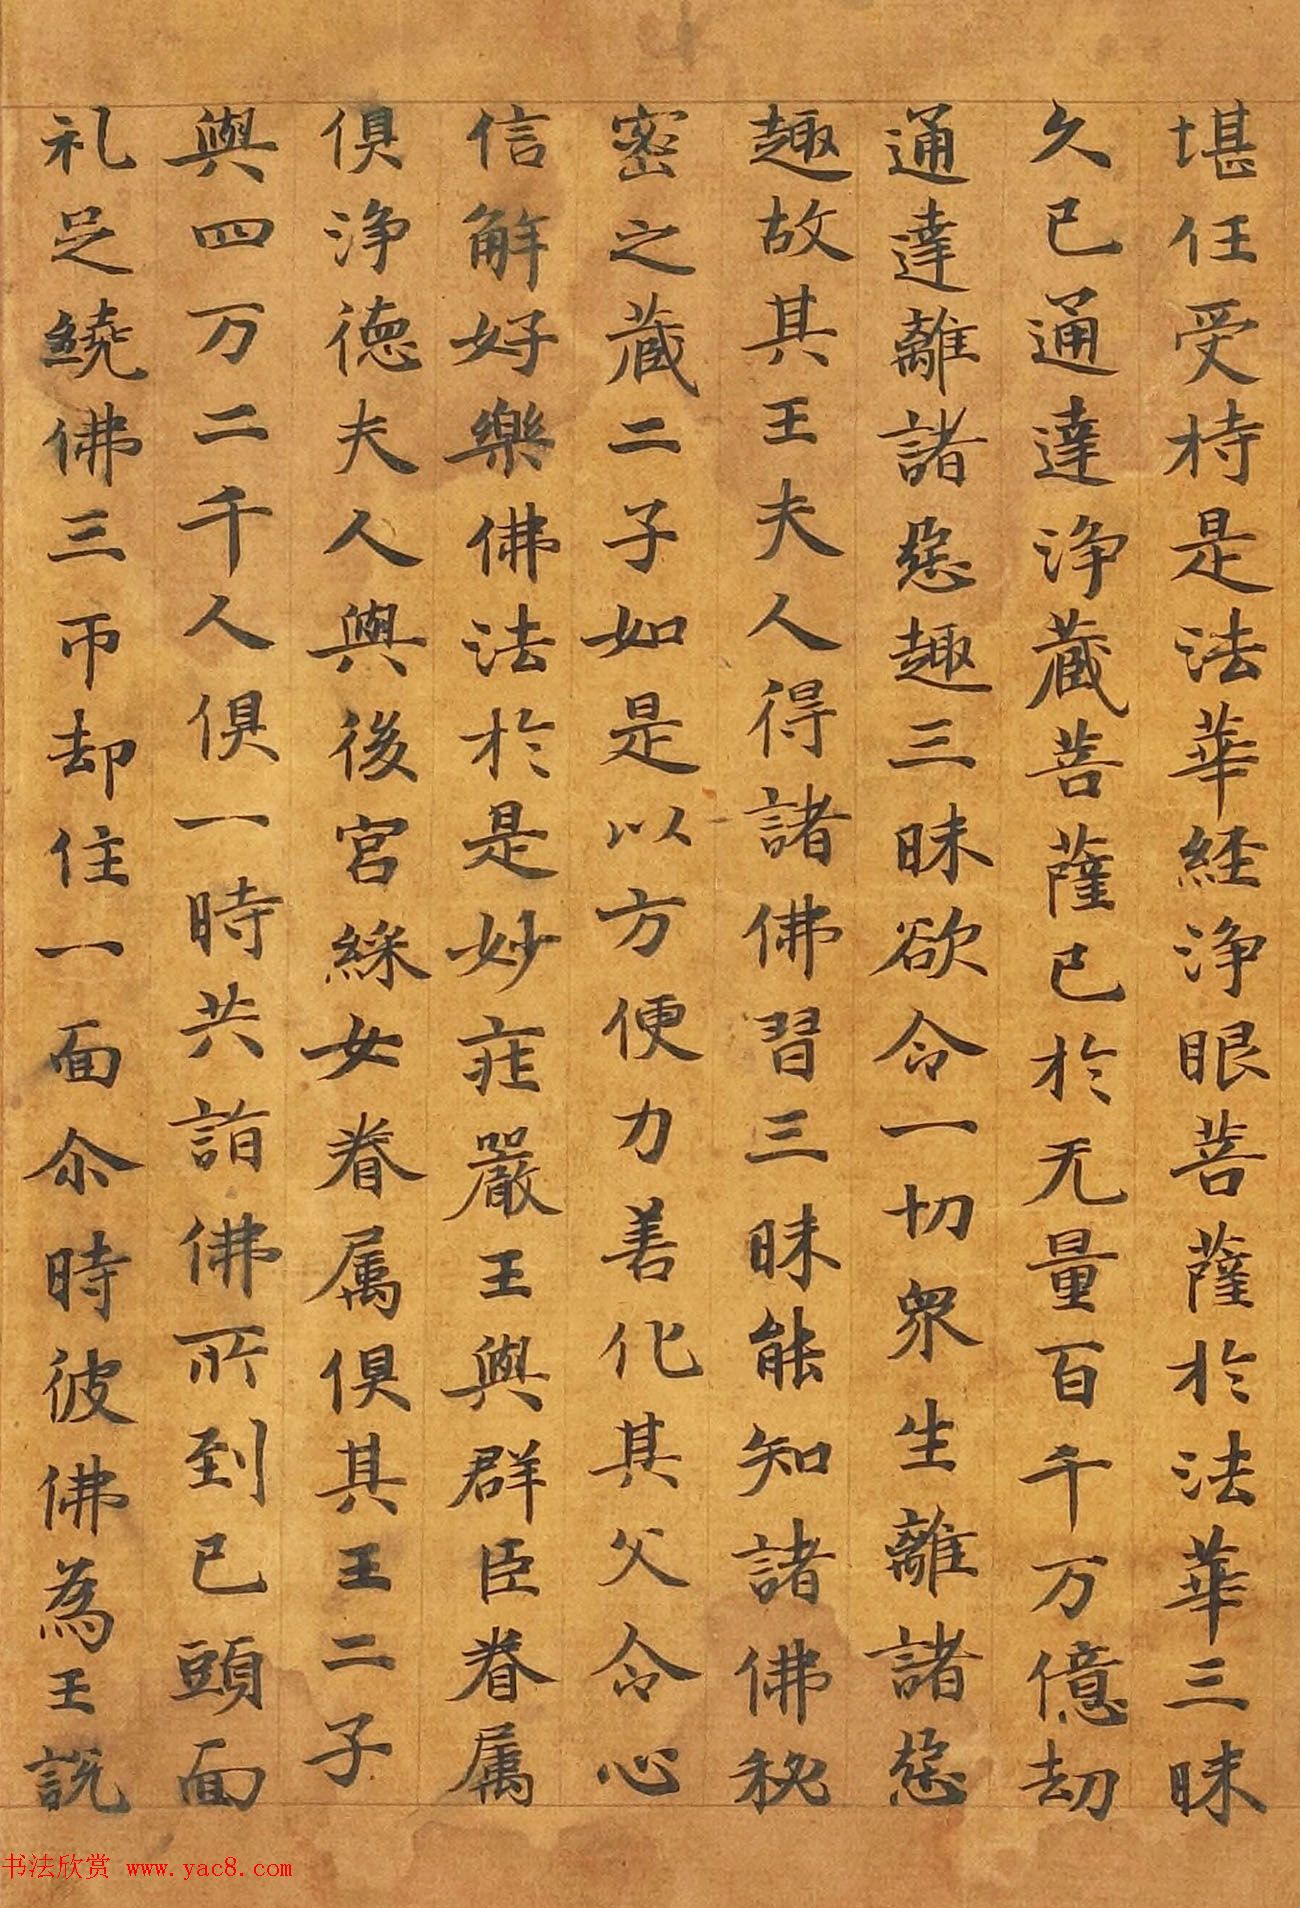 堪任受持是法華経浄眼菩薩於法華三昧
久已通達浄蔵菩薩已於无量百千万億劫
通達離諸惡趣三昧欲令一切衆生離諸惡
趣故其王夫人得諸佛習三昧能知諸佛秘
密之蔵二子如是以方便力善化其父令心
信解好樂佛法於是妙莊嚴王與群臣眷属
俱浄德夫人與後宮綵女眷属俱其王二子
與四万二千人俱一時共詣佛所到已頭面
礼足繞佛三帀却住一面尒時彼佛為王説
书法欣赏 www.yac8.com